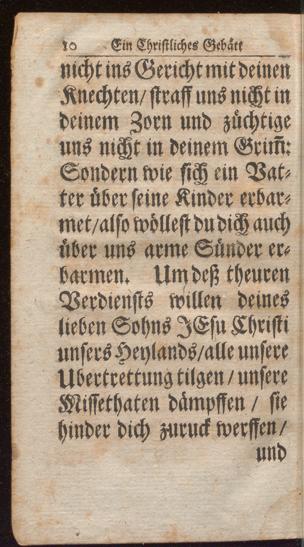 10 Ein Christliches Gebätt
nicht ins Gericht mit deinen
Knechten/ straff uns nicht in
deinem Zorn und züchtige
uns nicht in deinem Grim̃:
Sondern wie sich ein Vat-
ter über seine Kinder erbar-
met/also wöllest du dich auch
über uns arme Sünder er-
barmen. Um deß theuren
Verdiensts willen deines
lieben Sohns JEsu Christi
unsers Heylands/alle unsere
Ubertrettung tilgen / unsere
Missethaten dämpffen / sie
hinder dich zuruck werffen/
und